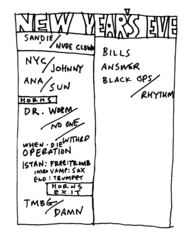 NEW YEAR'S EVE
SANDIE/
NUDE CLOWN
NYC/
JOHNNY
ANA/
SUN
HORNS
DR. WORM/
NO ONE/
WITHRD
WHEN DIE
OPERATION
ISTAN: FREE:TROMB
INTRO VAMP: SAX
END: TRUMPET
HORNS
EXIT
TMBG/
DAMN
BILLS
ANSWER
BLACK OPS/
RHYTHM